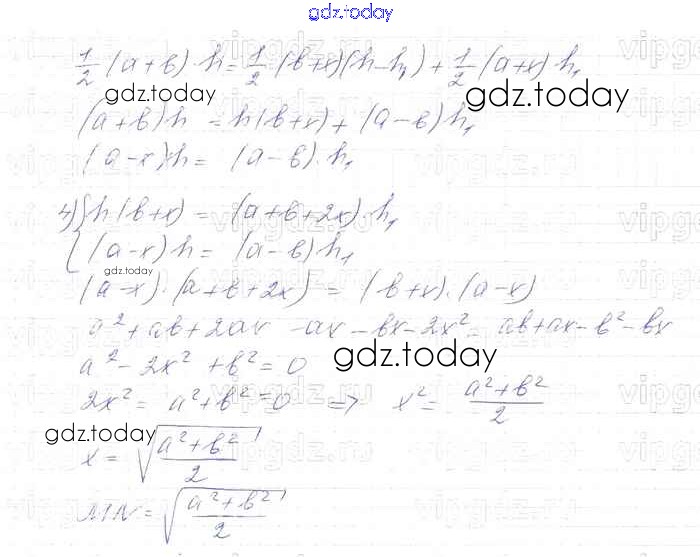 gdz.today
1/2 (a+b)·h = 1/2 (b+x)(h-h₁) + 1/2 (a+x)·h₁
gdz.today
(a+b)h = h(b+x) + (a-b)h₁
(a-x)·h = (a-b)·h₁
4) { h(b+x) = (a+b+2x)·h₁
(a-x)h = (a-b)h₁
gdz.today
(a-x)·(a+b+2x) = (b+x)·(a-x)
a²+ab+2ax -ax-bx-2x² = ab+ax-b²-bx
a²-2x²+b²=0
gdz.today
2x² = a²+b²=0 => x² = (a²+b²)/2
gdz.today
x = √((a²+b²)/2)
MN = √((a²+b²)/2)